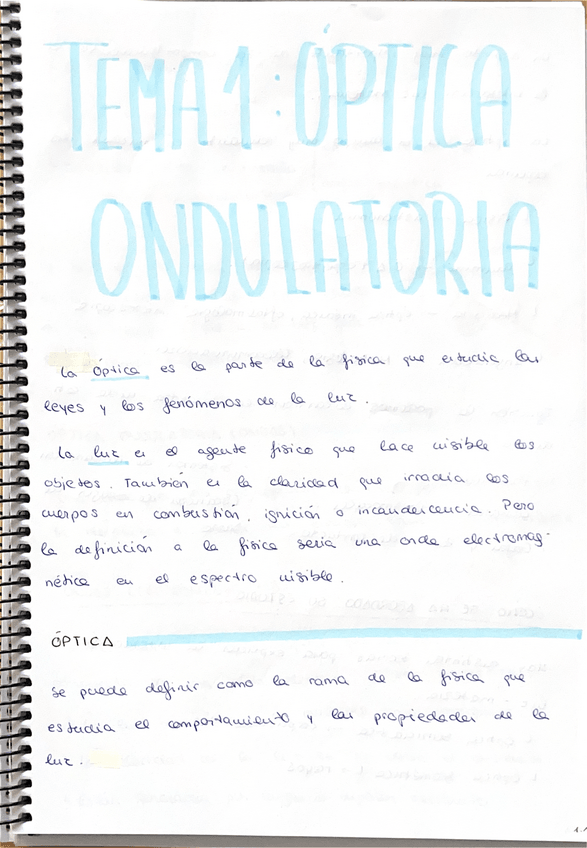 TEMA 1: ÓPTICA
ONDULATORIA
La Óptica es la parte de la física que estudia las
leyes y los fenómenos de la luz.
La luz es el agente físico que hace visible los
objetos. También es la claridad que irradia los
cuerpos en combustión, ignición o incandescencia. Pero
la definición a la física sería una onda electromag-
nética en el espectro visible.
ÓPTICA
Se puede definir como la rama de la física que
estudia el comportamiento y las propiedades de la
luz.